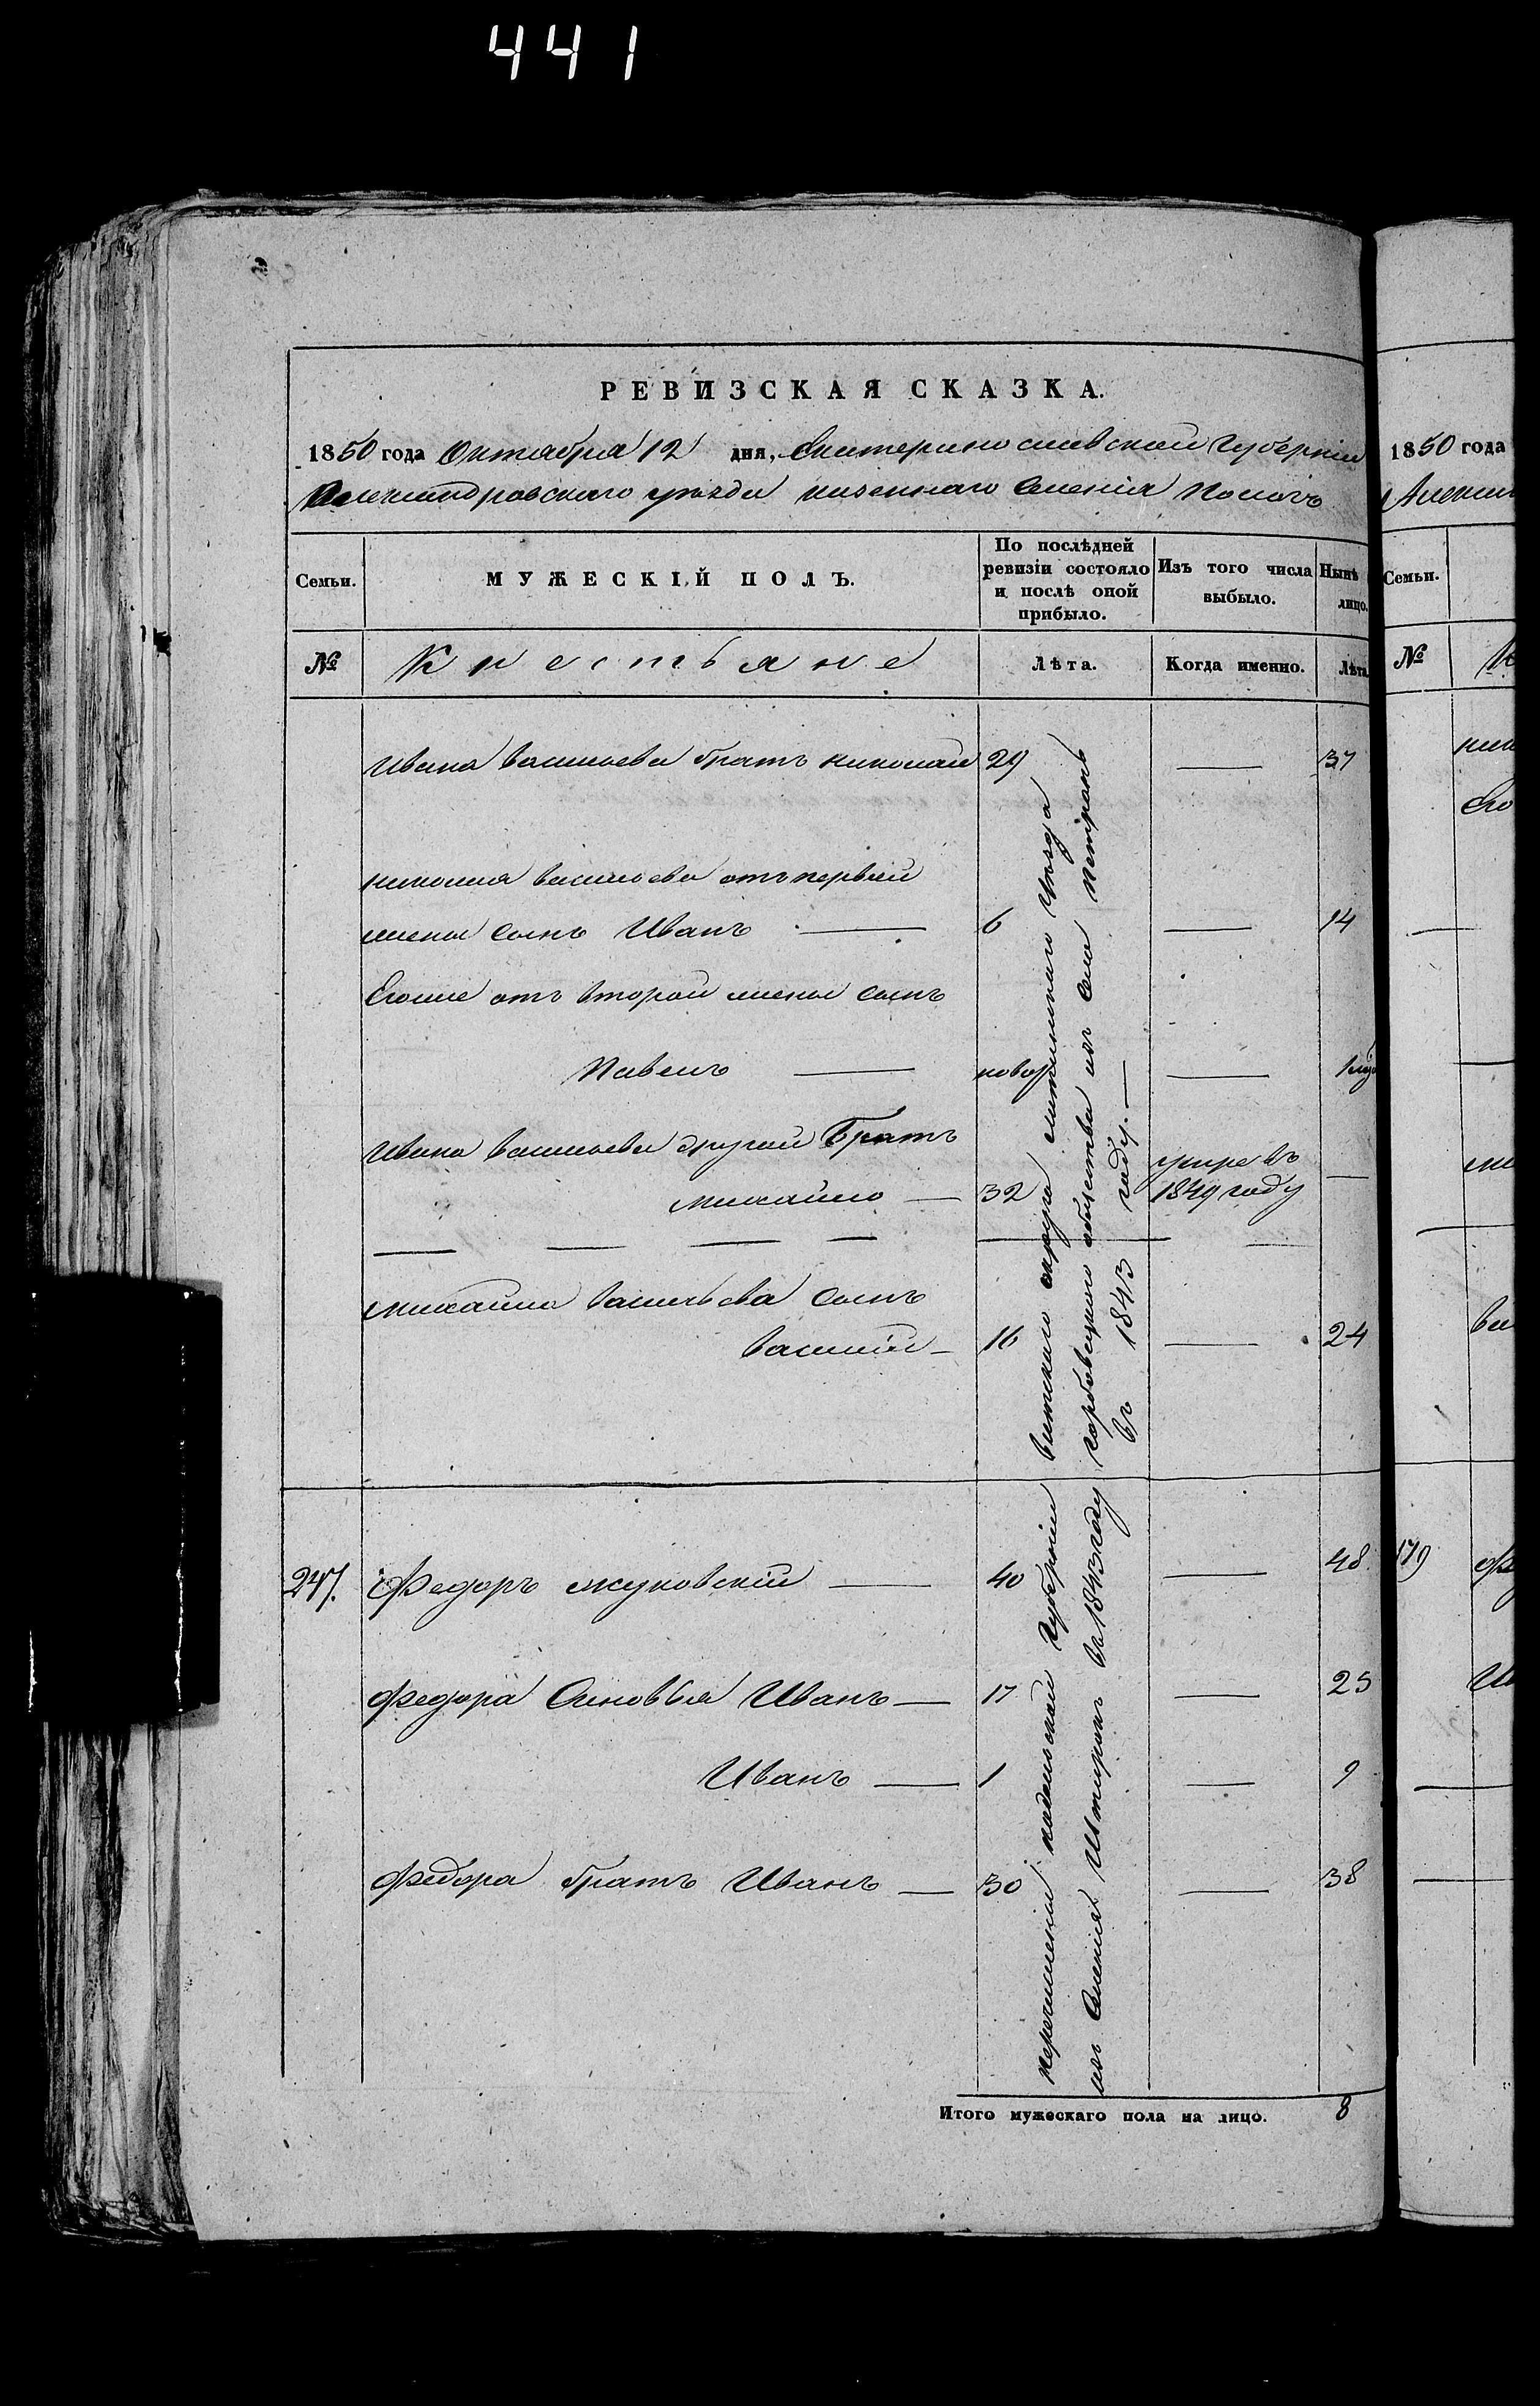 441
РЕВИЗСКАЯ СКАЗКА.
1850 года Октября 12 дня, Екатеринославской Губерніи
Александровскаго уѣзда казеннаго Селенія Пологъ
Семьи.
МУЖЕСКІЙ ПОЛЪ.
По послѣдней ревизіи состояло и послѣ оной прибыло.
Изъ того числа выбыло.
Нынѣ лицо.
№
Крестьяне
Лѣта.
Когда именно.
Лѣта
Ивана Васильева братъ Николай 29 — 37
Николая Васильева отъ первой
жены сынъ Иванъ — 6 — 14
Егоже отъ второй жены сынъ
Павелъ — новор —
Ивана Васильева другой Братъ
Михайло — 32 умре въ 1849 году —
Михайла Васильева сынъ
Василій — 16 — 24
247. Федоръ Жуковскій — 40 — 48
Федора Сыновья Иванъ — 17 — 25
Иванъ — 1 — 9
Федора братъ Иванъ — 30 — 38
Перечислены Подольской Губерніи
изъ Селенія въ 1843 году
округа Литинскаго Уѣзда
общества изъ Села
въ 1843 году. —
Итого мужескаго пола на лицо. 8
1850 года
Алексан
Семьи.
№
179